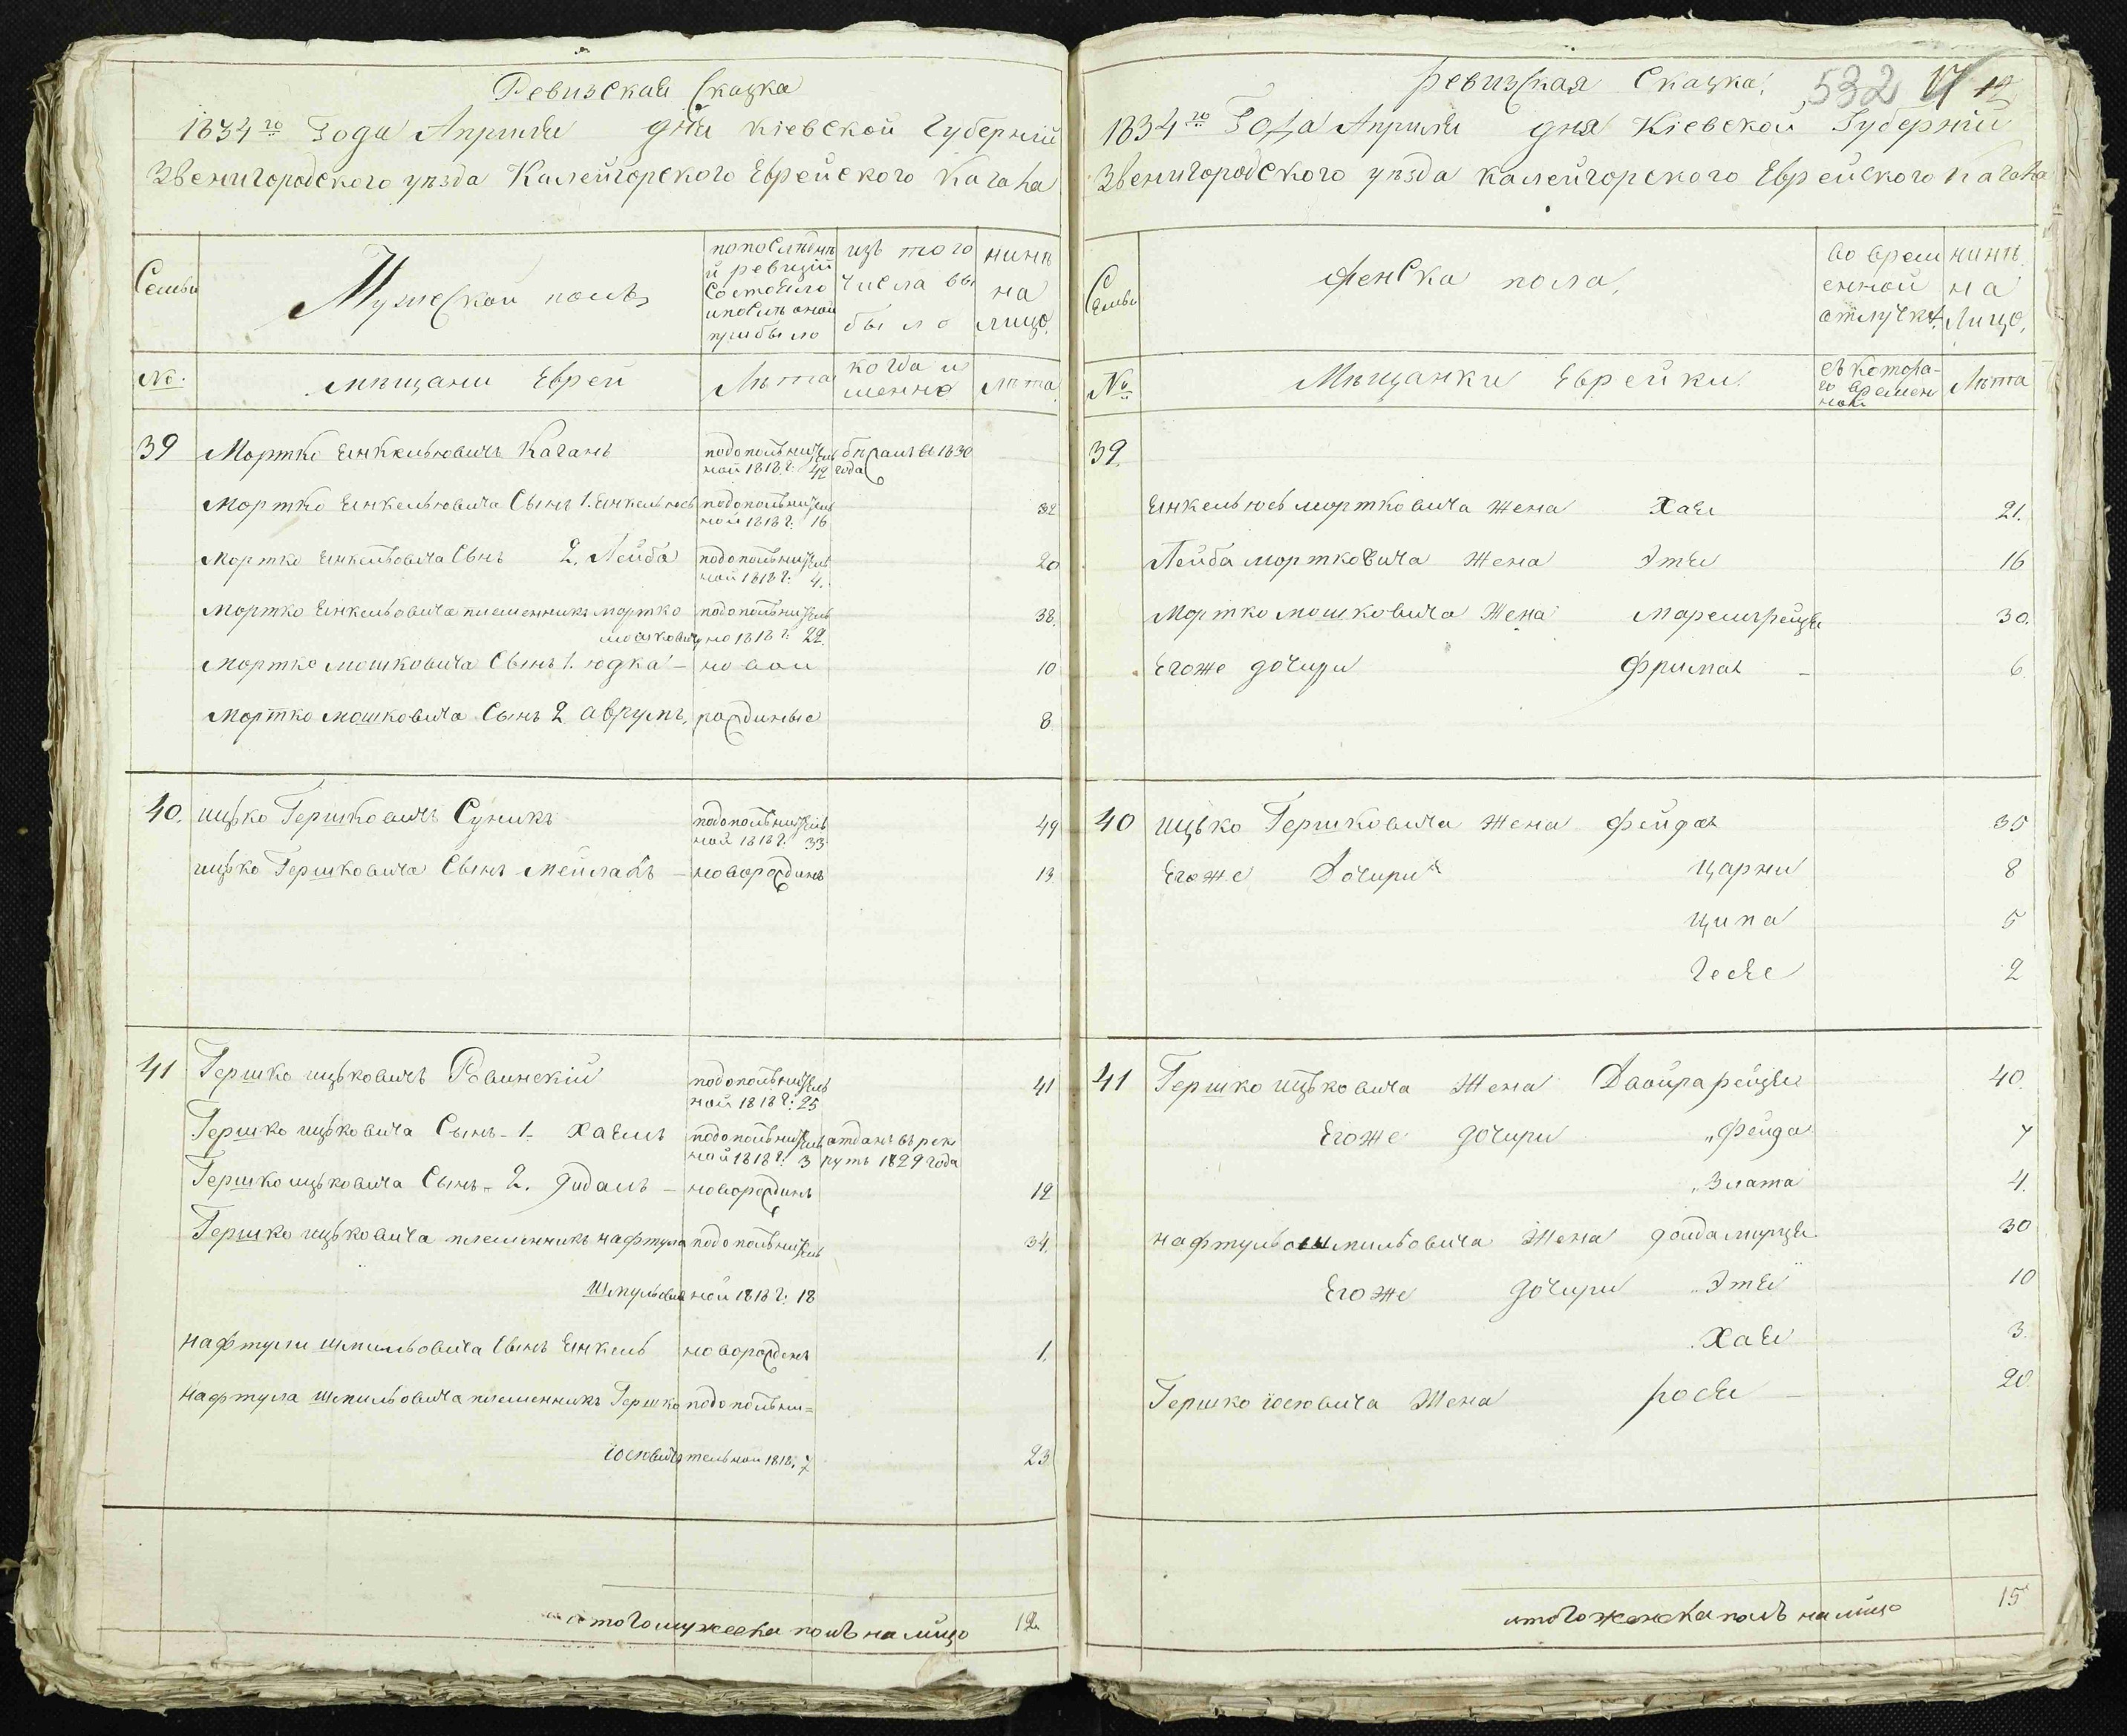 Ревизская Сказка
1834го Года Апреля дня Кіевской Губерніи
Звенигородского уѣзда Калейгорского Еврейского Кагала
Семьи
Мужеской полъ
по последней ревизіи состояло и после оной прибыло
изъ того числа выбыло
нинѣ на лицо
№
мѣщани Еврей
Лѣта
когда именно
лѣта
39 Мортко Енкельовичъ Каганъ
по дополнительной 1818 г: 42
1830 года
Мортко Енкельовича Сынъ 1. Енкель юсь
по дополнительной 1818 г: 16
32
Мортко Енкельовича Сынъ 2. Лейба
по дополнительной 1818 г: 4.
20
Мортко Енкельовича племенникъ мортко
мошковичъ
по дополнительно 1818 г: 22
38.
Мортко мошковича Сынъ 1. юдка — ново
10
Мортко мошковича Сынъ 2 аврумъ, рождиные
8.
40. ицько Гершковичъ Суникъ
по дополнительной 1818 г: 33
49
ицько Гершковича Сынъ мейлахъ — новорождинъ
13.
41 Гершко ицьковичъ Ровинскій
по дополнительной 1818 г: 25
41
Гершко ицьковича Сынъ - 1 - хаимъ
по дополнительной 1818 г: 3
атданъ въ рекрутъ 1829 года
Гершко ицьковича Сынъ - 2. — новорождинъ
12
Гершко ицьковича племенникъ нафтула
по дополнительной 1818 г: 18
34.
нафтули шмильовича Сынъ Енкель новорожденъ
1.
нафтула шмильовича племенникъ Гершко
юсьовичъ
по дополнительной 1818. 7
23.
итого мужеска полъ на лицо 12
Ревизская Сказка.
532 17
1834го Года Апреля дня Кіевской Губерніи
Звенигородского уѣзда калейгорского Еврейского Кагала
Семьи
Женска пола,
во временной атлучки.
нинѣ на лицо,
№
Мѣщанки Еврейки
съ котораго времени
Лѣта
39.
Енкель юсь мортковича жена Хая 21.
Лейба мортковича жена Этя 16
Мортко мошковича жена 30.
Егоже дочири Фрима — 6.
40 ицько Гершковича жена Фейга 35
Егоже Дочири Царни 8
ципа 5
Гося 2
41 Гершко ицьковича жена Двойра рейзя 40.
Егоже дочири „Фейга 7
„Злата 4.
нафтула шмильовича жена 30
Егоже дочири „Этя 10
Хая 3.
Гершко юсьовича жена рося — 20
итого женска полъ на лицо 15